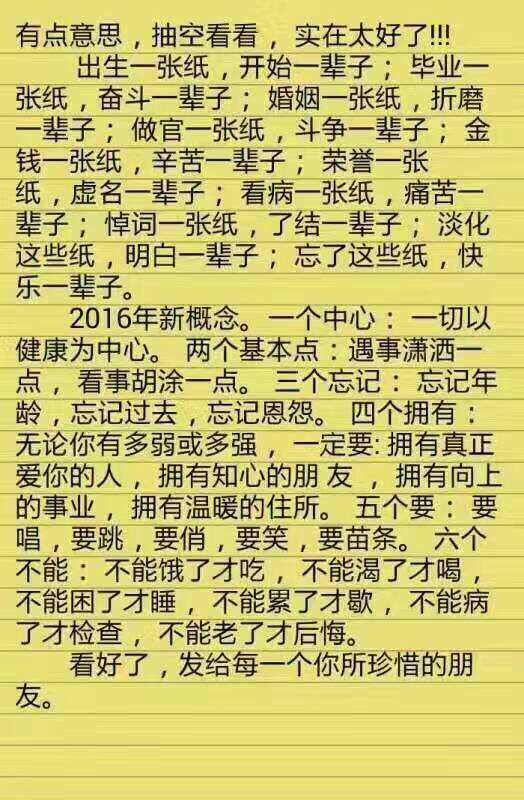 有点意思，抽空看看， 实在太好了!!!
出生一张纸，开始一辈子； 毕业一
张纸，奋斗一辈子； 婚姻一张纸，折磨
一辈子； 做官一张纸，斗争一辈子； 金
钱一张纸，辛苦一辈子； 荣誉一张
纸，虚名一辈子； 看病一张纸，痛苦一
辈子； 悼词一张纸，了结一辈子； 淡化
这些纸，明白一辈子； 忘了这些纸，快
乐一辈子。
2016年新概念。一个中心： 一切以
健康为中心。 两个基本点：遇事潇洒一
点， 看事胡涂一点。 三个忘记： 忘记年
龄，忘记过去，忘记恩怨。 四个拥有：
无论你有多弱或多强， 一定要: 拥有真正
爱你的人， 拥有知心的朋 友 ， 拥有向上
的事业， 拥有温暖的住所。 五个要： 要
唱，要跳，要俏，要笑，要苗条。 六个
不能： 不能饿了才吃， 不能渴了才喝，
不能困了才睡， 不能累了才歇， 不能病
了才检查， 不能老了才后悔。
看好了，发给每一个你所珍惜的朋
友。